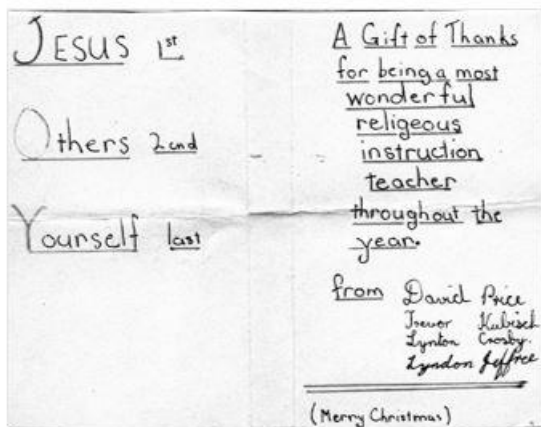 JESUS 1st
Others 2nd
Yourself last
A Gift of Thanks
for being a most
wonderful
religeous
instruction
teacher
throughout the
year.
from David Price
Trevor Kubisch
Lynton Crosby.
Lyndon Jeffree
(Merry Christmas)